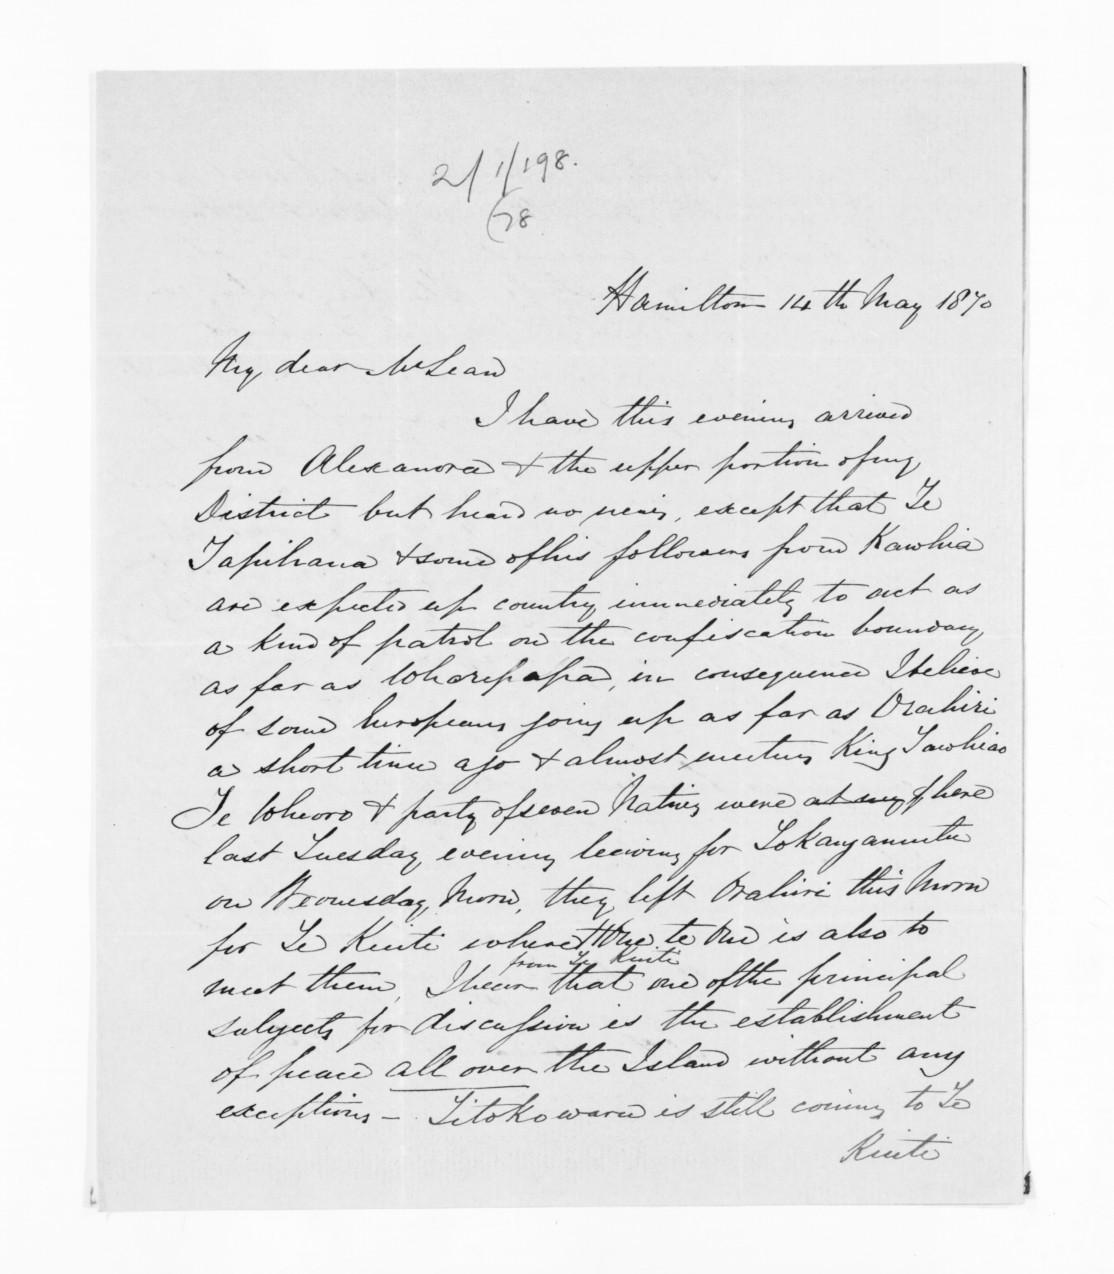 2/1/198.
78
Hamilton 14th May 1870
My dear McLean
I have this evening arrived
from Alexandra & the upper portion of my
District but heard no news, except that Te
Tapihana & some of his followers from Kawhia
are expected up country immediately to act as
a kind of patrol on the confiscation boundary
as far as Wharepapa, in consequence I believe
of some Europeans going up as far as Orahiri
a short time ago & almost meeting King Tawhiao
Te Wheoro & party of seven Natives were at my here
last Tuesday evening leaving for Tokangamutu
on Wednesday Morn, they left Orahiri this Morn
for Te Kuiti where te is also to
meet them, I hear from Te Kuiti that one of the principal
subjects for discussion is the establishment
of peace all over the Island without any
exceptions - Titokowaru is still coming to Te
Kuiti